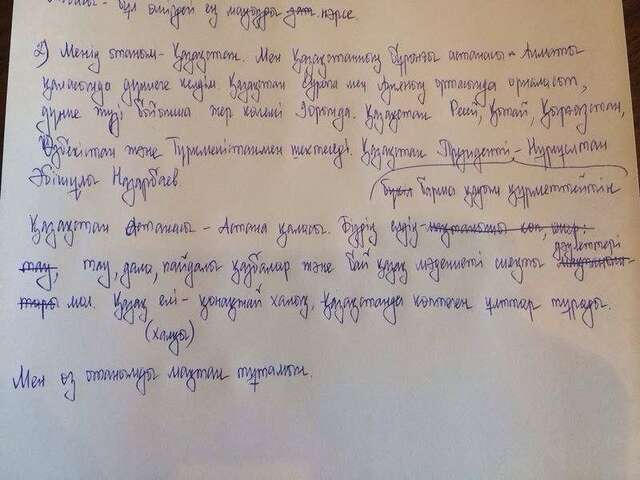 бұл өмірдегі ең маңызды дат. нәрсе.
2) Менің отаным - Қазақстан. Мен Қазақстанның бұрынғы астанасы - Алматы
қаласында дүниеге келдім. Қазақстан Еуропа мен Азияның ортасында орналасқан,
дүние жүзі бойынша жер көлемі 9орында. Қазақстан Ресей, Қытай, Қырғызстан,
Өзбекістан және Түрікменістанмен шектеседі. Қазақстан Президенті - Нұрсұлтан
Әбішұлы Назарбаев
барша қауым құрметтейтін
Қазақстан Астанасы - Астана қаласы. Біздің елдің -
дәулеттері
тау, тау, дала, пайдалы қазбалар және бай қазақ мәдениеті сияқты
мол. Қазақ елі - қонақжай халық, Қазақстанда көптеген ұлттар тұрады.
(халқы)
Мен өз отанымды мақтан тұтамын.